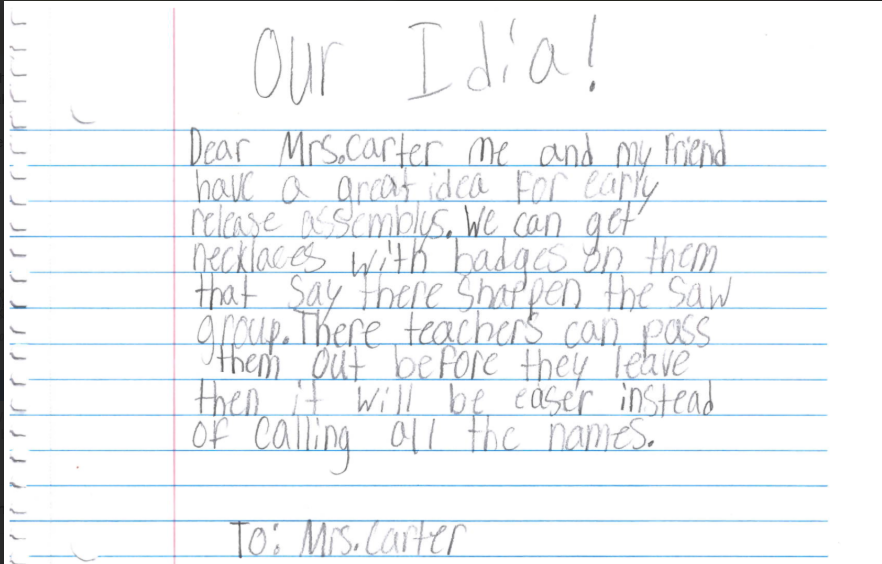 Our Idia!
Dear Mrs.Carter me and my friend
have a great idea for early
release assemblys. We can get
necklaces with badges on them
that say there shappen the saw
group. There teachers can pass
them out before they leave
then it will be easer instead
of calling all the names.
To: Mrs. Carter